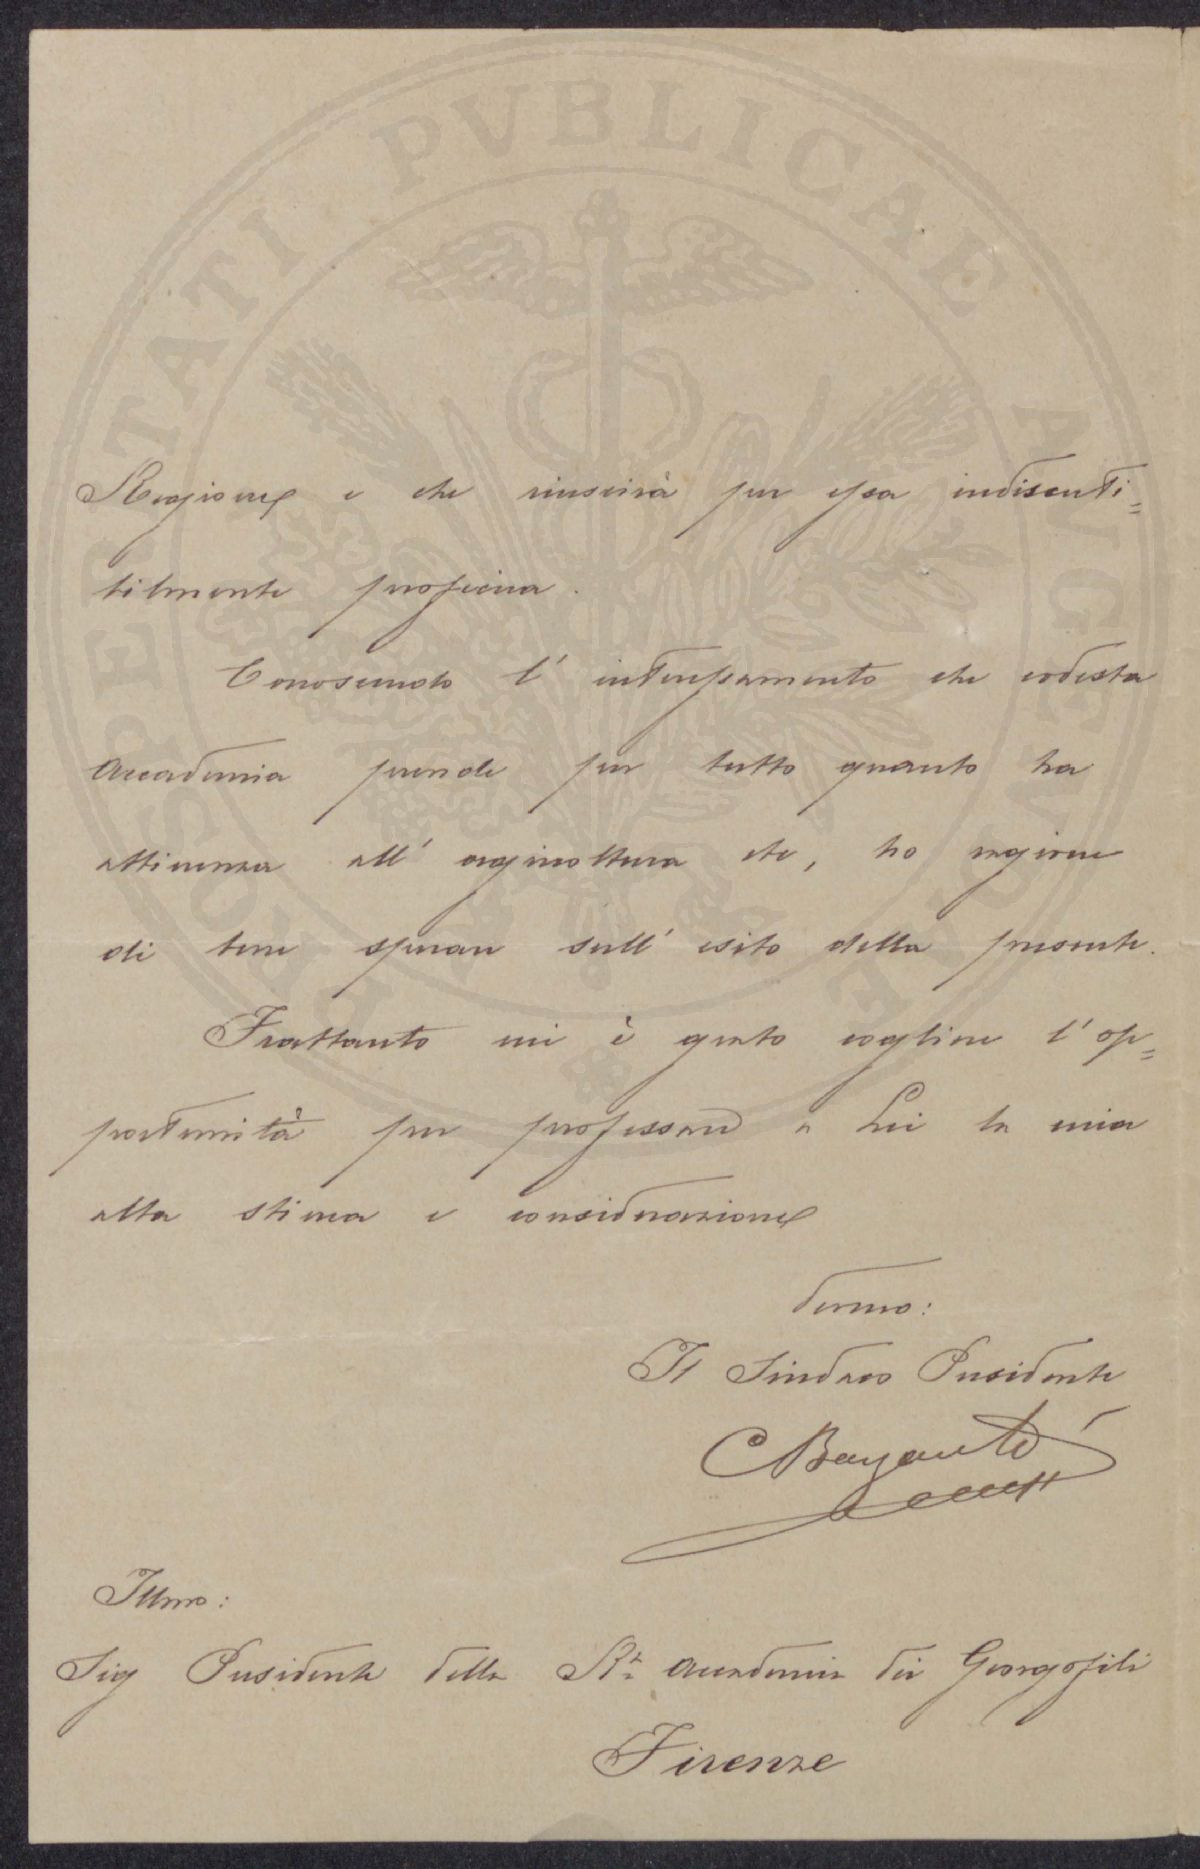 PROSPERITATI PVBLICAE AVGENDAE
Regione e che riuscirà per essa indiscuti=
bilmente proficua.
Conoscendo l' interessamento che codesta
Accademia prende per tutto quanto ha
attinenza all' agricoltura etc, ho ragione
di bene sperare sull' esito della presente.
Frattanto mi è grato cogliere l' op=
portunità per professare a Lui la mia
alta stima e considerazione
Devmo:
Il Sindaco Presidente
Illmo:
Sig Presidente della Rª Accademia dei Georgofili
Firenze